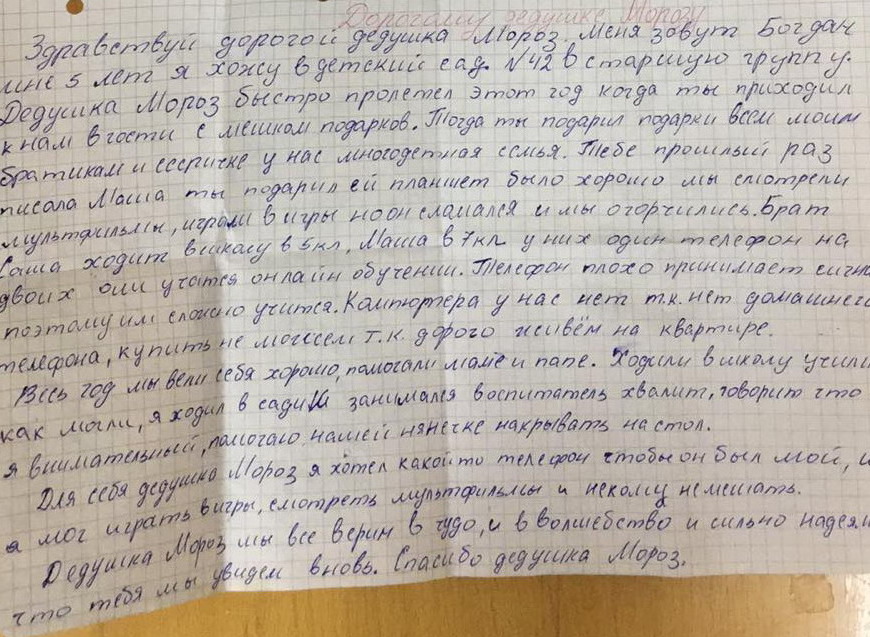 Дорогому дедушке Морозу
Здравствуй дорогой дедушка Мороз. Меня зовут Богдан
мне 5 лет я хожу в детский сад. №42 в старшую группу.
Дедушка Мороз быстро пролетел этот год когда ты приходил
к нам в гости с мешком подарков. Тогда ты подарил подарки всем моим
братикам и сестричке у нас многодетная семья. Тебе прошлый раз
писала Маша ты подарил ей планшет было хорошо мы смотрели
мультфильмы, играли в игры но он сламался и мы огорчились. Брат
Саша ходит в школу в 5 кл, Маша в 7 кл у них один телефон на
двоих они учатся онлайн обучении. Телефон плохо принимает сигна
поэтому им сложно учится. Компютера у нас нет т.к. нет домашнего
телефона, купить не можем т.к. дорого живём на квартире.
Весь год мы вели себя хорошо, помогали маме и папе. Ходили в школу учили
как могли, я ходил в садик занимался воспитатель хвалит, говорит что
я внимательный, помогаю нашей нянечке накрывать на стол.
Для себя дедушка Мороз я хотел какой то телефон чтобы он был мой, и
я мог играть в игры, смотреть мультфильмы и некому немешать.
Дедушка Мороз мы все верим в чудо, и в волшебство и сильно надеем
что тебя мы увидем вновь. Спасибо дедушка Мороз.